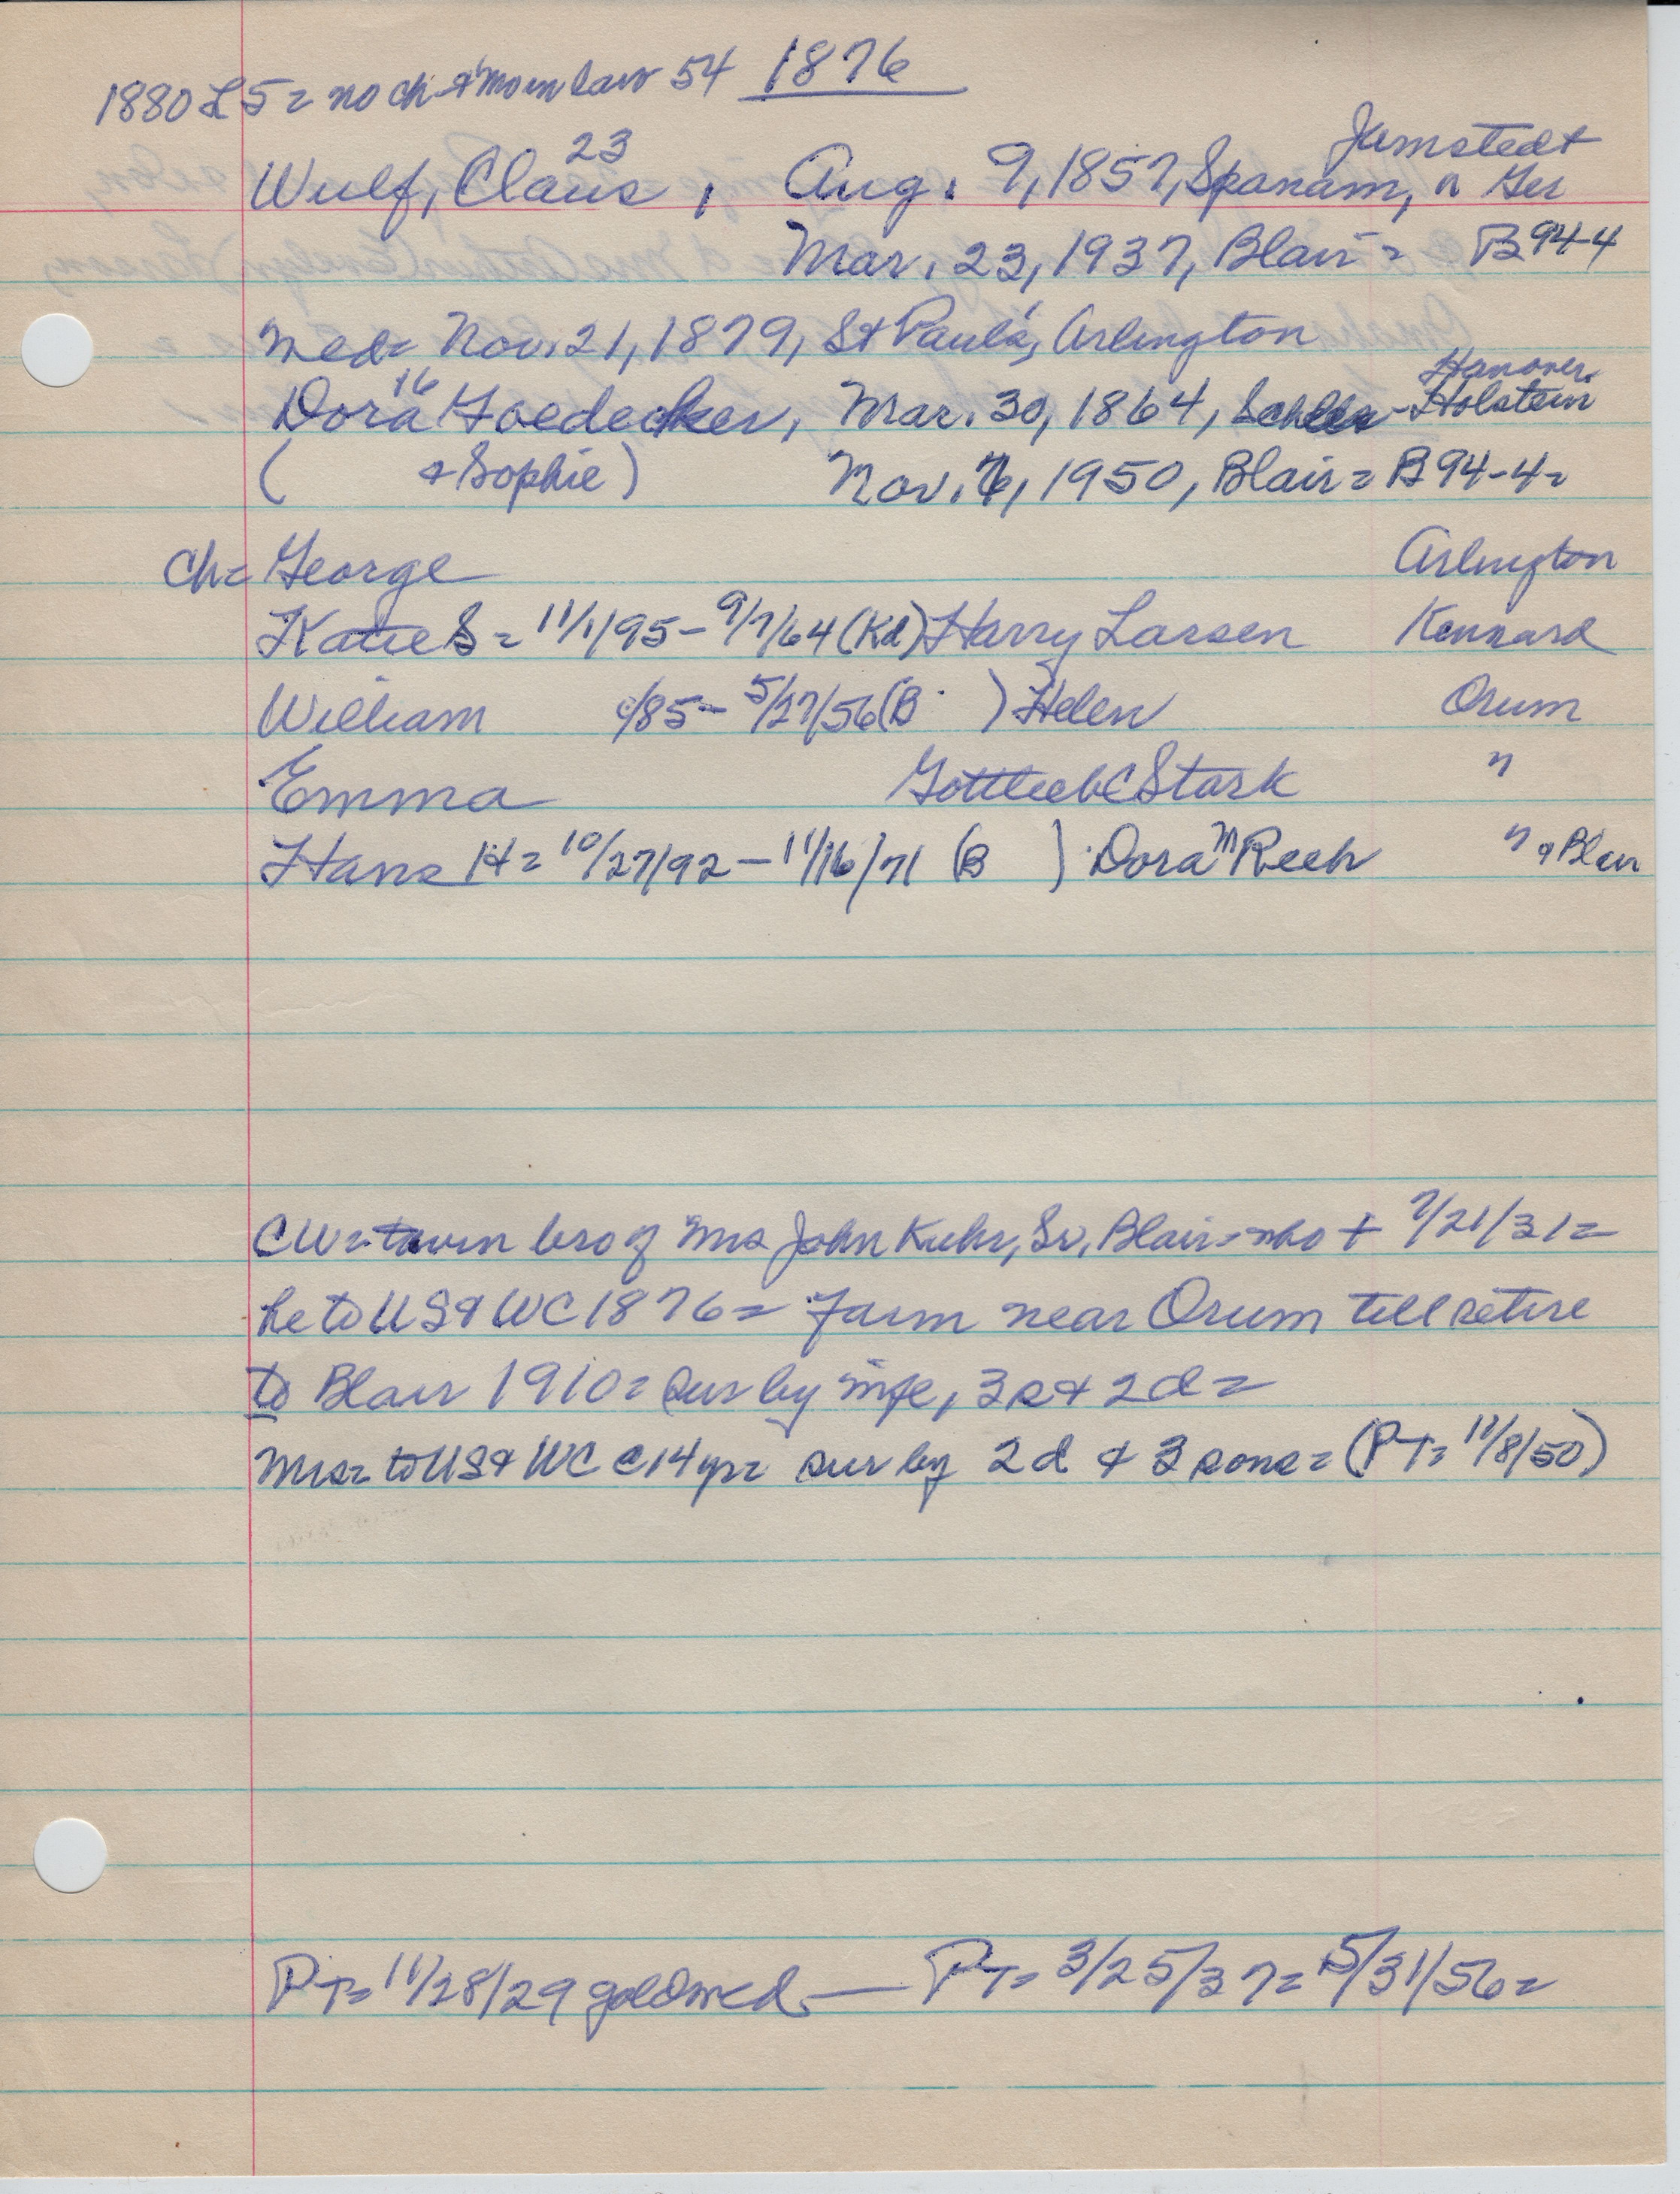 1876
1880 L5 = no ch + mo in law 54
23 Jamstedt
Wulf, Claus, Aug. 9, 1857, Spanam, n Ger
Mar. 23, 1937, Blair = B 94-4
Med = Nov. 21, 1879, St Paul's, Arlington
16 Hanover
Dora Goedecker, Mar. 30, 1864, Holstein
( + Sophie) Nov. 6, 1950, Blair = B 94-4 =
Ch = George Arlington
Katie S = 11/1/95 - 9/7/64 (Kd) Harry Larsen Kennard
William c/85 - 5/27/56 (B ) Helen Orum
Emma Gottlieb C Stark "
Hans H = 10/27/92 - 11/16/71 (B ) Dora M Reeh " & Blair
CW = twin bro of Mrs John Kuhr, Sr, Blair = who + 7/21/31 =
he to US & WC 1876 = Farm near Orum till retire
to Blair 1910 = sur by wife, 3 s + 2 d =
Mrs = to US & WC c 14 yr = sur by 2 d + 3 sons = (PT = 11/8/50)
PT = 11/28/29 gold wed — PT = 3/25/37 = 5/31/56 =